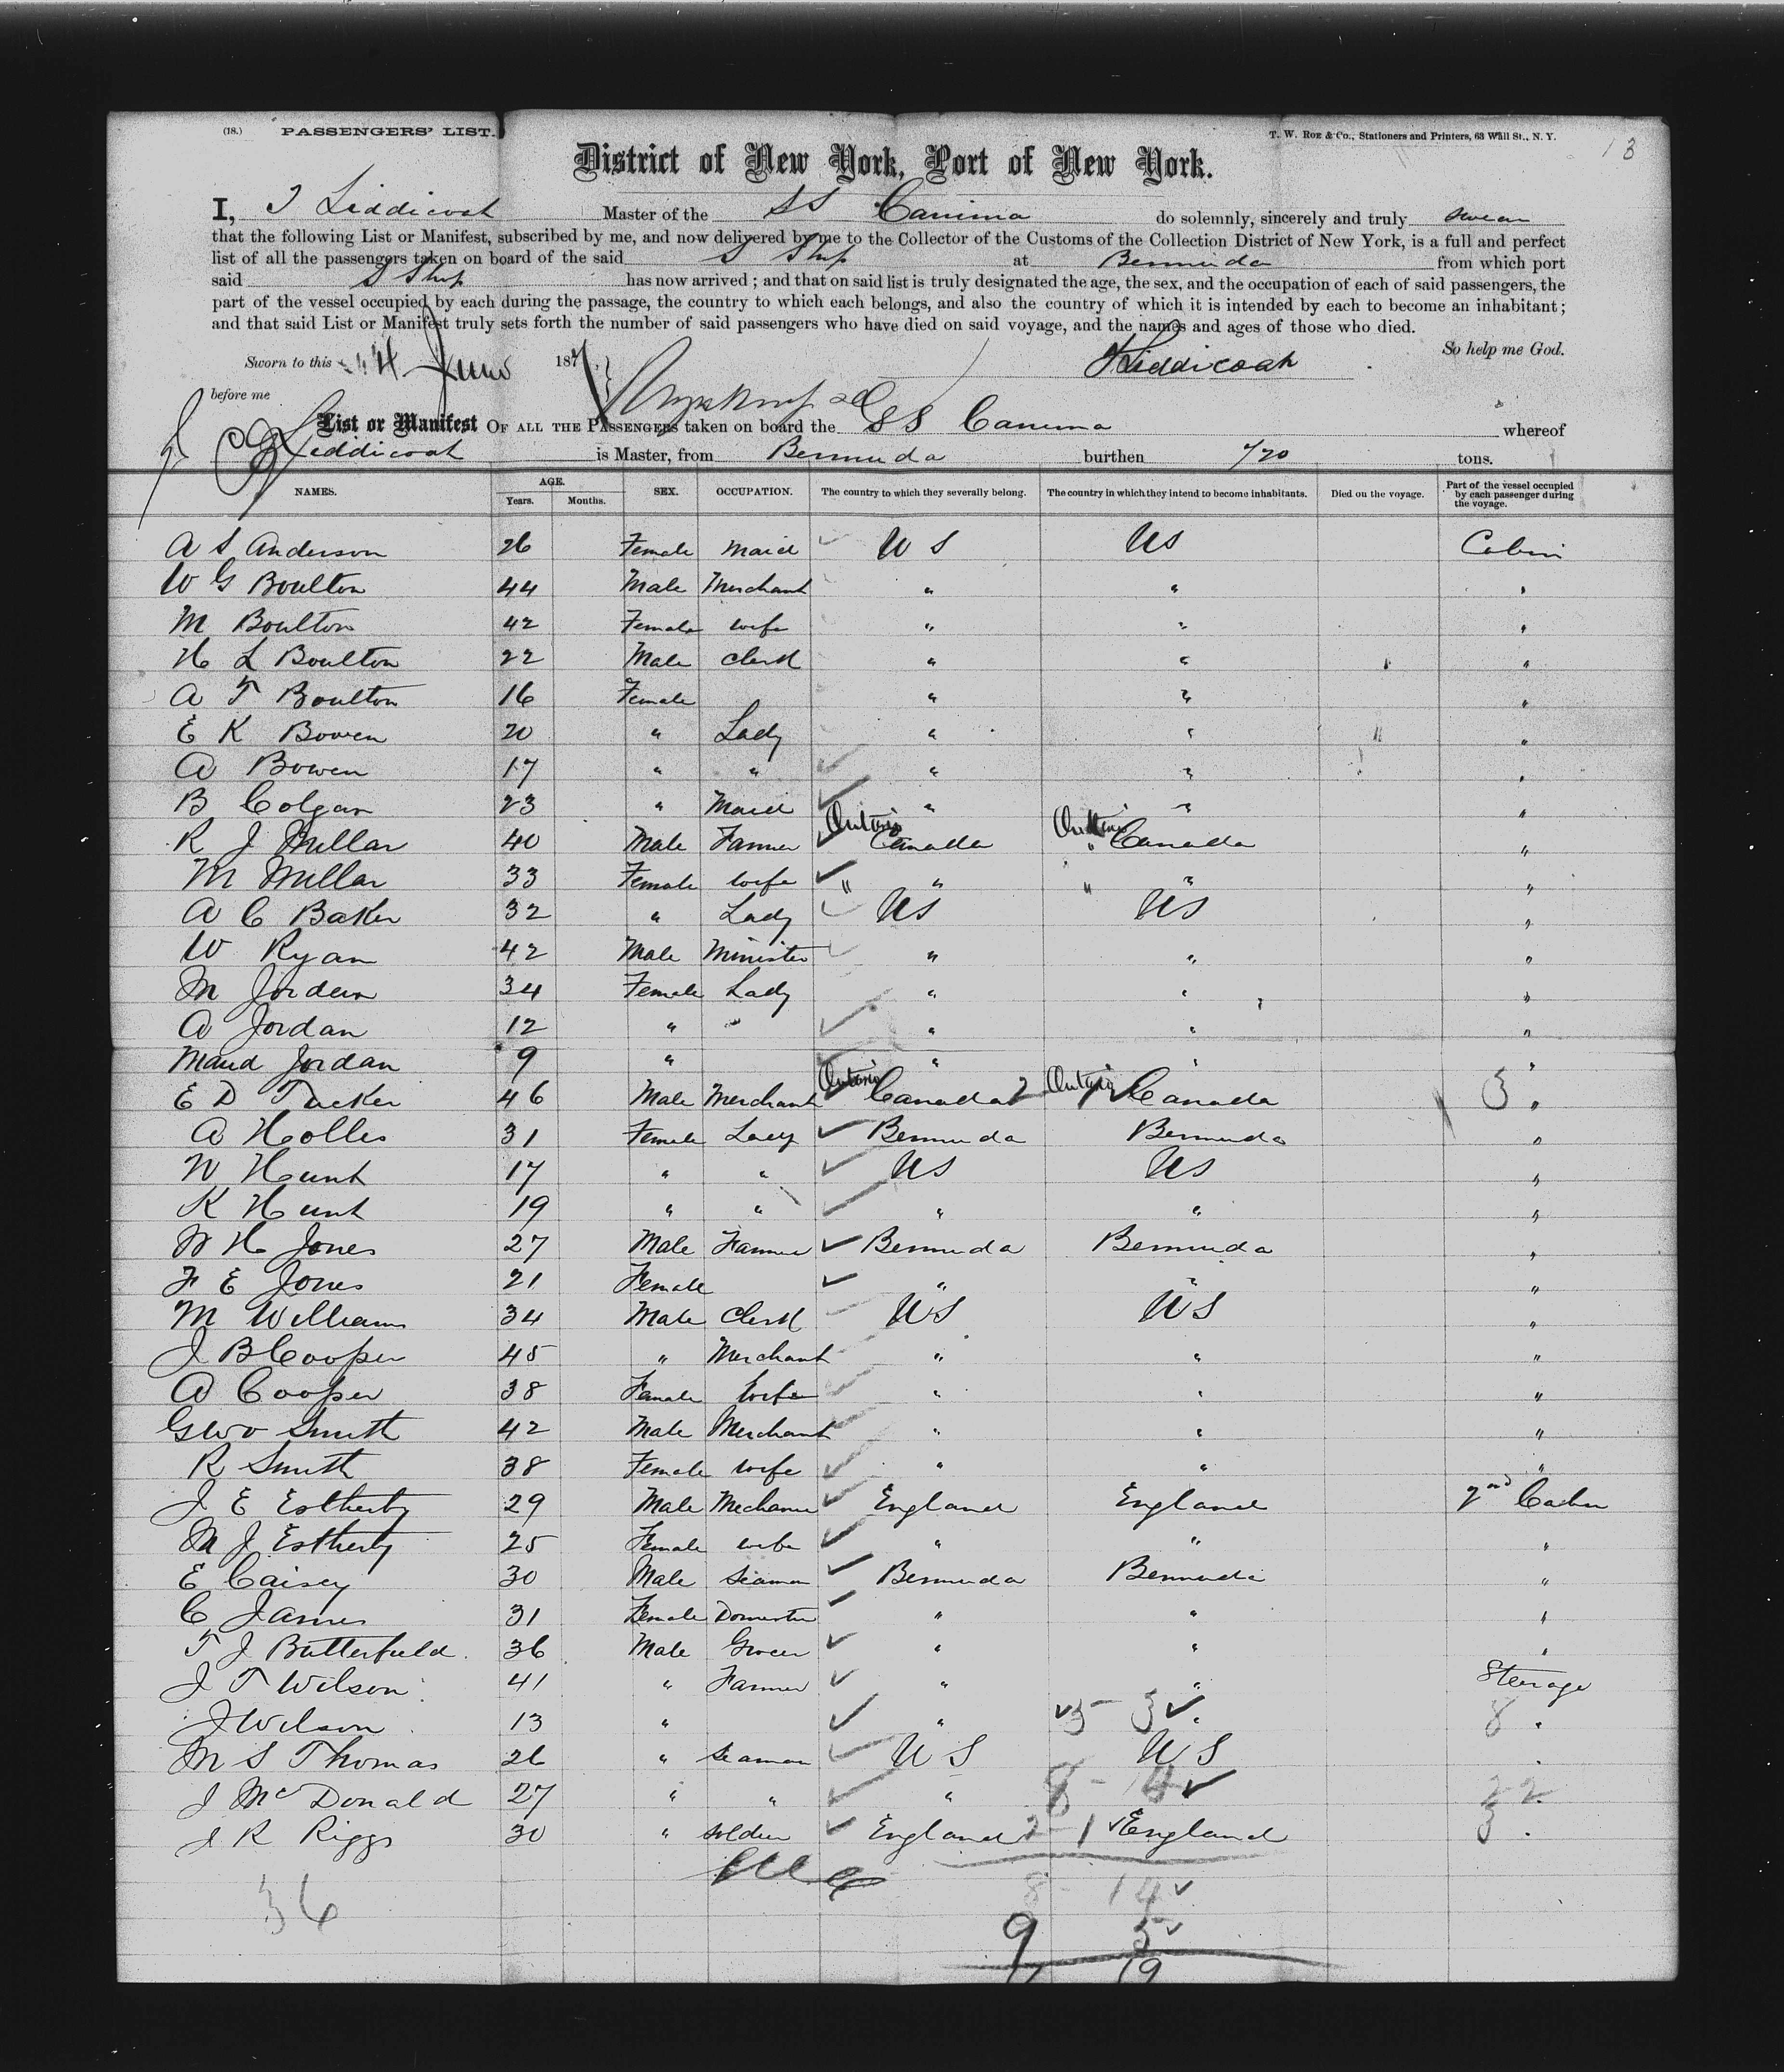 (18.) PASSENGERS' LIST. T. W. ROE & Co., Stationers and Printers, 63 Wall St., N. Y. 13
District of New York, Port of New York.
I, J Liddicoat Master of the SS Canima do solemnly, sincerely and truly swear
that the following List or Manifest, subscribed by me, and now delivered by me to the Collector of the Customs of the Collection District of New York, is a full and perfect
list of all the passengers taken on board of the said S Ship at Bermuda from which port
said S Ship has now arrived ; and that on said list is truly designated the age, the sex, and the occupation of each of said passengers, the
part of the vessel occupied by each during the passage, the country to which each belongs, and also the country of which it is intended by each to become an inhabitant ;
and that said List or Manifest truly sets forth the number of said passengers who have died on said voyage, and the names and ages of those who died.
So help me God.
Sworn to this 14 June 187 Liddicoat
before me
List or Manifest OF ALL THE PASSENGERS taken on board the SS Canima whereof
Liddicoat is Master, from Bermuda burthen 720 tons.
NAMES. AGE. Years. Months. SEX. OCCUPATION. The country to which they severally belong. The country in which they intend to become inhabitants. Died on the voyage. Part of the vessel occupied by each passenger during the voyage.
A S Anderson 26 Female Maid U S US Cabin
W G Boulton 44 Male Merchant " " "
M Boulton 42 Female wife " " "
H L Boulton 22 Male Clerk " " "
A T Boulton 16 Female " " "
E K Bowen 20 " Lady " " "
A Bowen 17 " " " " "
B Colgan 23 " Maid " " "
R J Millar 40 Male Farmer Ontario Canada Ontario " Canada "
M Millar 33 Female wife " " " " "
A C Baker 32 " Lady US US "
W Ryan 42 Male Minister " " "
M Jordan 34 Female Lady " " "
A Jordan 12 " " " " "
Maud Jordan 9 " " " "
E D Tucker 46 Male Merchant Ontario Canada 2 Ontario 1 Canada 3 "
A Hollis 31 Female Lady Bermuda Bermuda "
N Hunt 17 " " US US "
K Hunt 19 " " " " "
W H Jones 27 Male Farmer Bermuda Bermuda "
F E Jones 21 Female " " "
M Williams 34 Male Clerk US US "
J B Cooper 45 " Merchant " " "
A Cooper 38 Female Wife " " "
Geo Smith 42 Male Merchant " " "
R Smith 38 Female wife " " "
J E Estherby 29 Male Mechanic England England 2nd Cabin
M J Estherby 25 Female wife " " "
E Caisey 30 Male Seaman Bermuda Bermuda "
C James 31 Female Domestic " " "
T J Butterfield 36 Male Grocer " " "
J T Wilson 41 " Farmer " " Steerage
J Wilson 13 " " 5 - 3 " 8 "
M S Thomas 26 " Seaman U S U S "
J McDonald 27 " " " 8 - 14 22
J R Riggs 30 " Soldier England 2 - 1 England 3 "
36 8 - 14
9 5
17 19